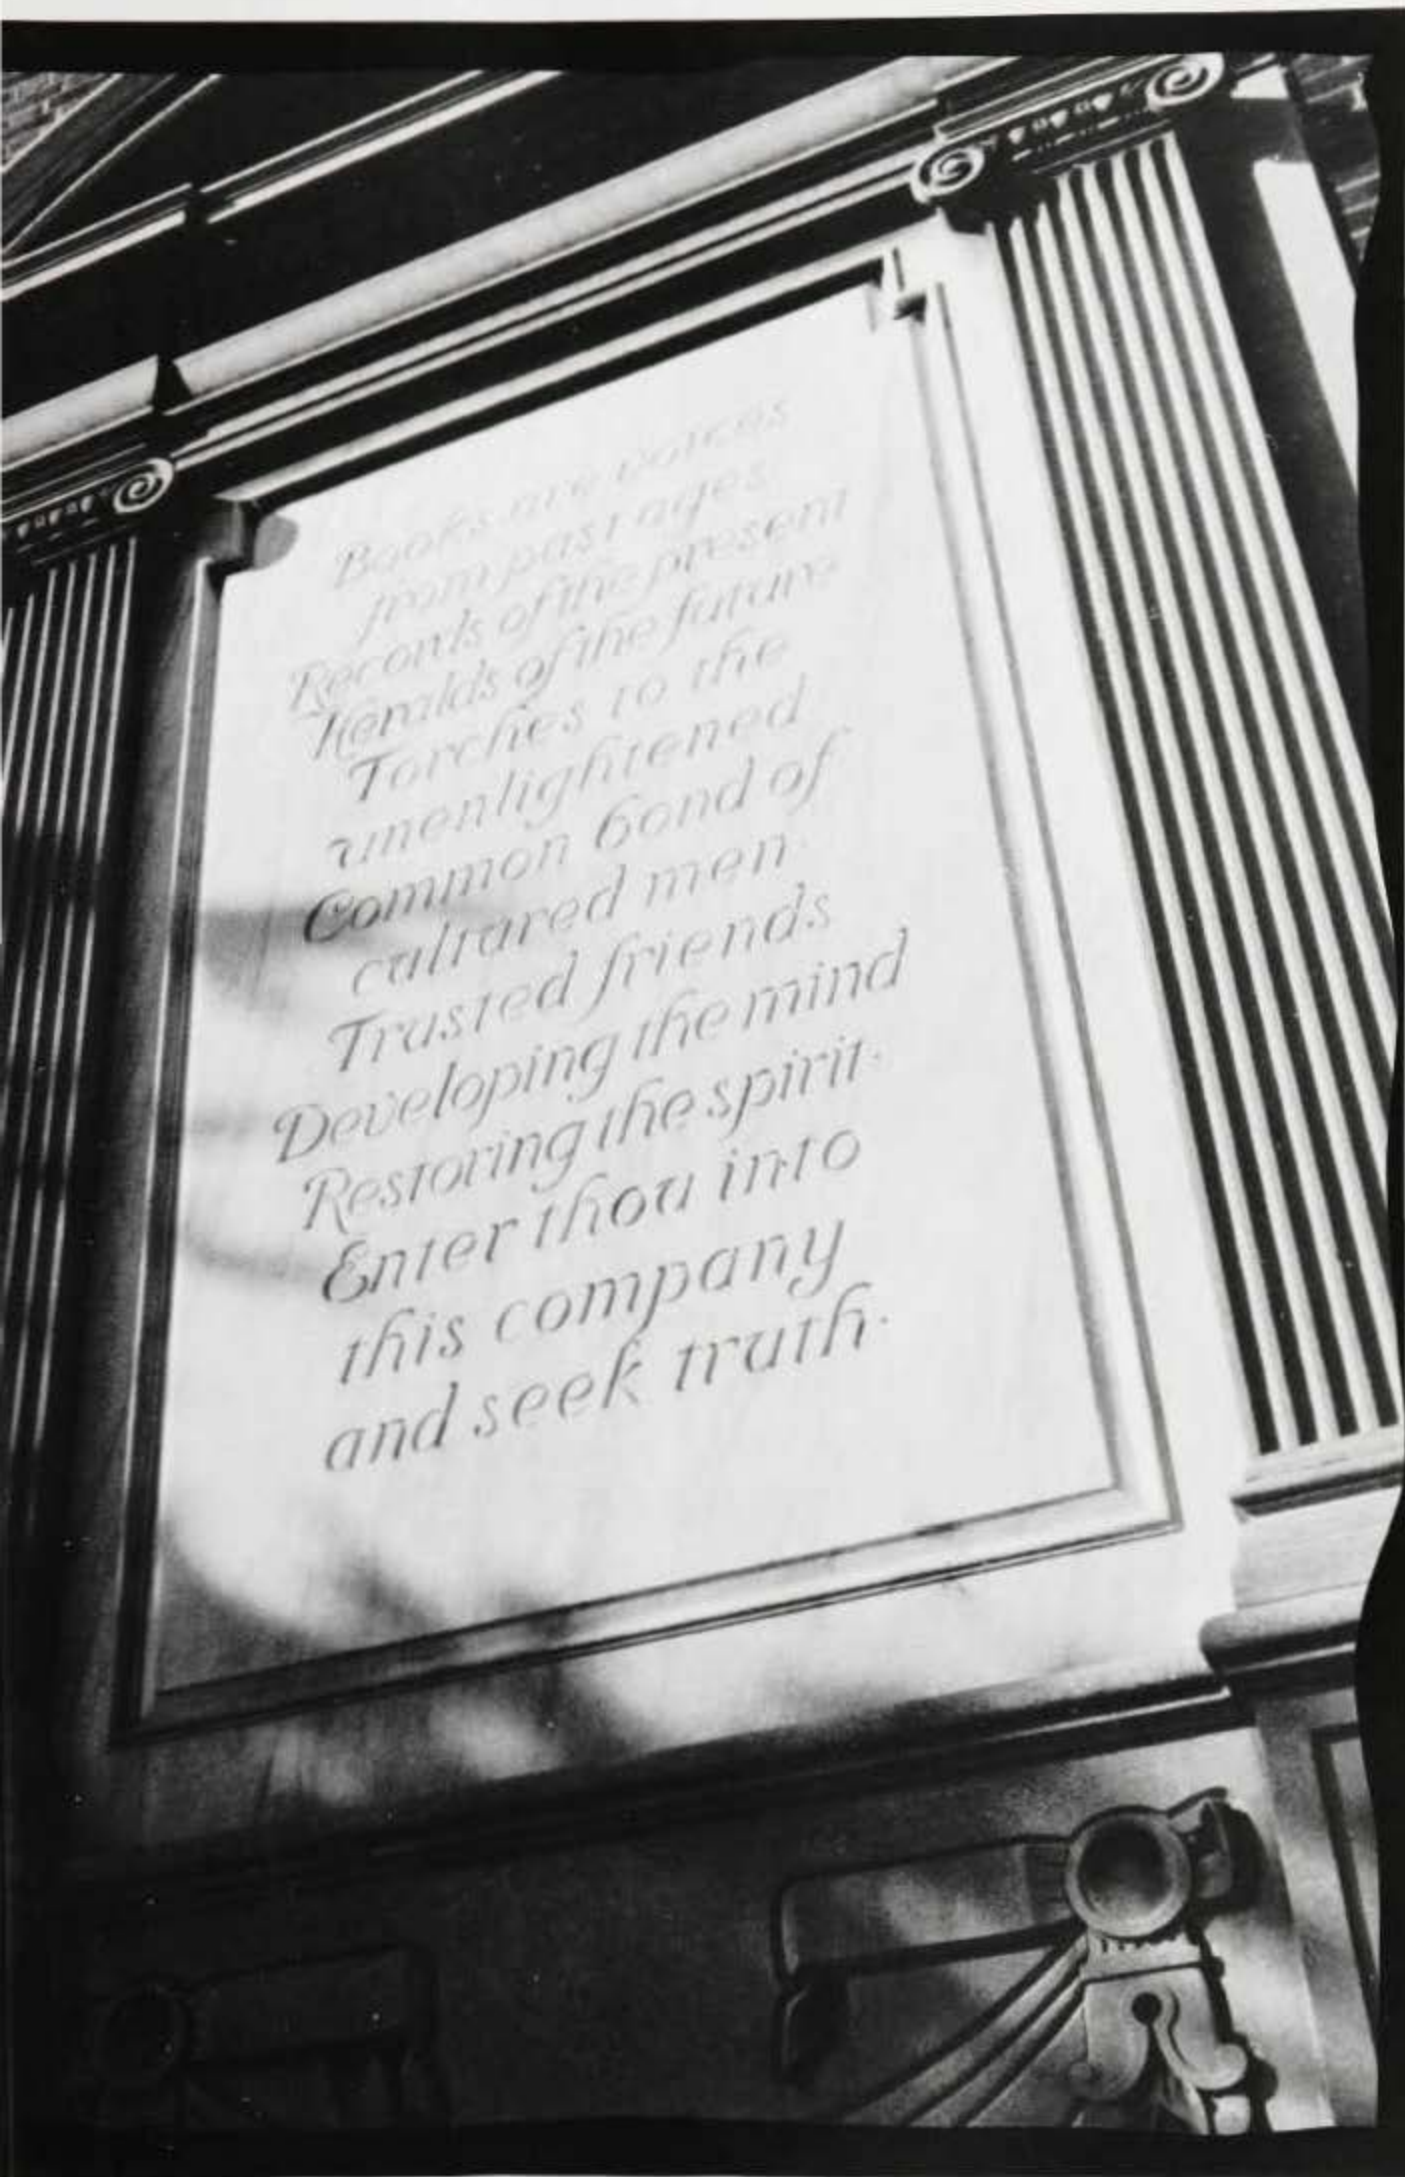 Books are voices
from past ages
Records of the present
Heralds of the future
Torches to the
unenlightened
Common bond of
cultured men·
Trusted friends
Developing the mind
Restoring the spirit·
Enter thou into
this company
and seek truth·